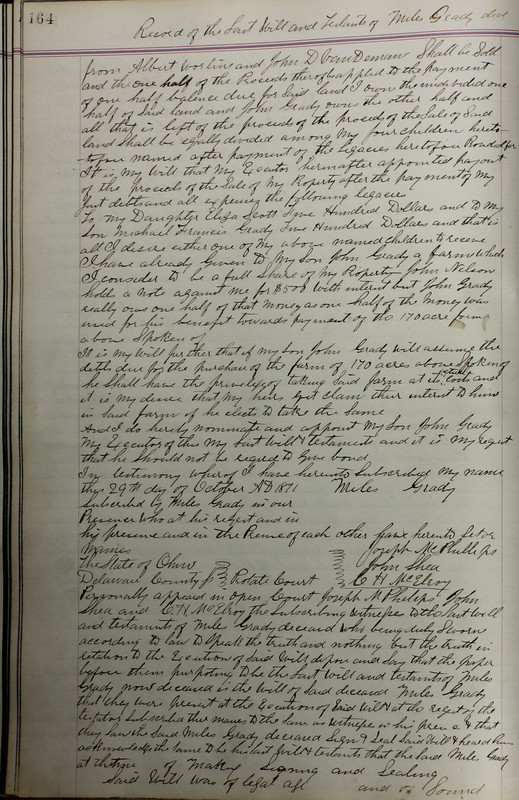 164
Record of the Last Will and Testants of Miles Grady decd
from Albert Worline and John D VanDeman Shall be Sold
and the one half of the Proceeds therof be applied to the payment
of one half balence due for Said land I own the undivided one
half of Said land and John Grady owns the other half and
all that is left of the proceeds of the proceeds of the Sale of Said
land Shall be equally divided among My four children hereto-
-tofore named after payment of the Legacies heretofore
It is My Will that My Executor hereinafter appointed pay out
of the proceeds of the Sale of My Property after the payment of My
Just debts and all expences the following legacies
To My Daughter Eliza Scott Five Hundred Dollars and To My
Son Michael Francis Grady Five Hundred Dollars and that is
all I desire either one of My above named Children to receve
I have already Given to My Son John Grady a farm which
I consider to be a full Share of My Property John Nelson
holds a Note against Me for $500 with interest but John Grady
really owes one half of that Money as one half of the Money was
used for his benefit towards payment of the 170 acre farm
above Spoken of
It is My Will further that if My Son John Grady will assume the
debts due for the purchase of the farm of 170 acres above Spoken of
he Shall have the priveledge of taking Said farm at its actual Costs and
it is My desire that My heirs quit claim their interest to him
in Said farm if he elects to take the Same
And I do hereby nominate and appoint My Son John Grady
My Executor of this My Last Will & testaments and it is My request
that he Should not be required to Give bond
In testimony wherof I have hereunto Subscribed My name
this 29th day of October AD 1871 Miles Grady
Subscribed by Miles Grady in our
Presence Who at his request and in
his presence and in the Presence of each other have hereunto Set our
Names Joseph McPhillips
The State of Ohio John Shea
Delaware County SS Probate Court C H McElroy
Personally appeared in open Court Joseph McPhilips John
Shea and C. H. McElroy the Subscribing Witnesses to the last Will
and testaments of Miles Grady deceased who being duly Sworn
according to law to Speak the truth and nothing but the truth in
relation to the Execution of Said Will, depose and Say that the paper
before them purporting to be the Last Will and testants of Miles
Grady now deceased is the Will of Said deceased Miles Grady
that they were present at the Execution of Said Will & at the request of the
testator Subscribed their names to the Same as Witnesses in his presence & that
they Saw the Said Miles Grady deceased Sign & Seal Said Will & heard him
acknowledge the Same to be his last Will & testants that the Said Miles Grady
at the time of Making Signing and Sealing
Said Will was of legal age and of Sound